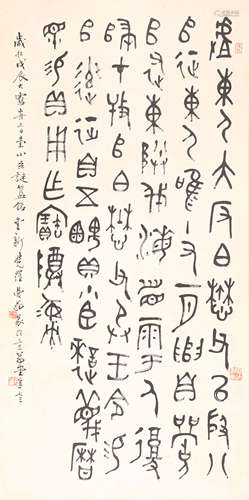 𠭯東夷大反白懋父以殷八
𠂤征東夷唯十又一月遣自𩫨
𠂤述東陜伐海眉雩厥復
歸才牧𠂤白懋父承王令易
𠂤率征自五齵貝小臣謎蔑曆
眔易貝用乍寶尊彝
歲次戊辰大寒 書小臣謎簋銘